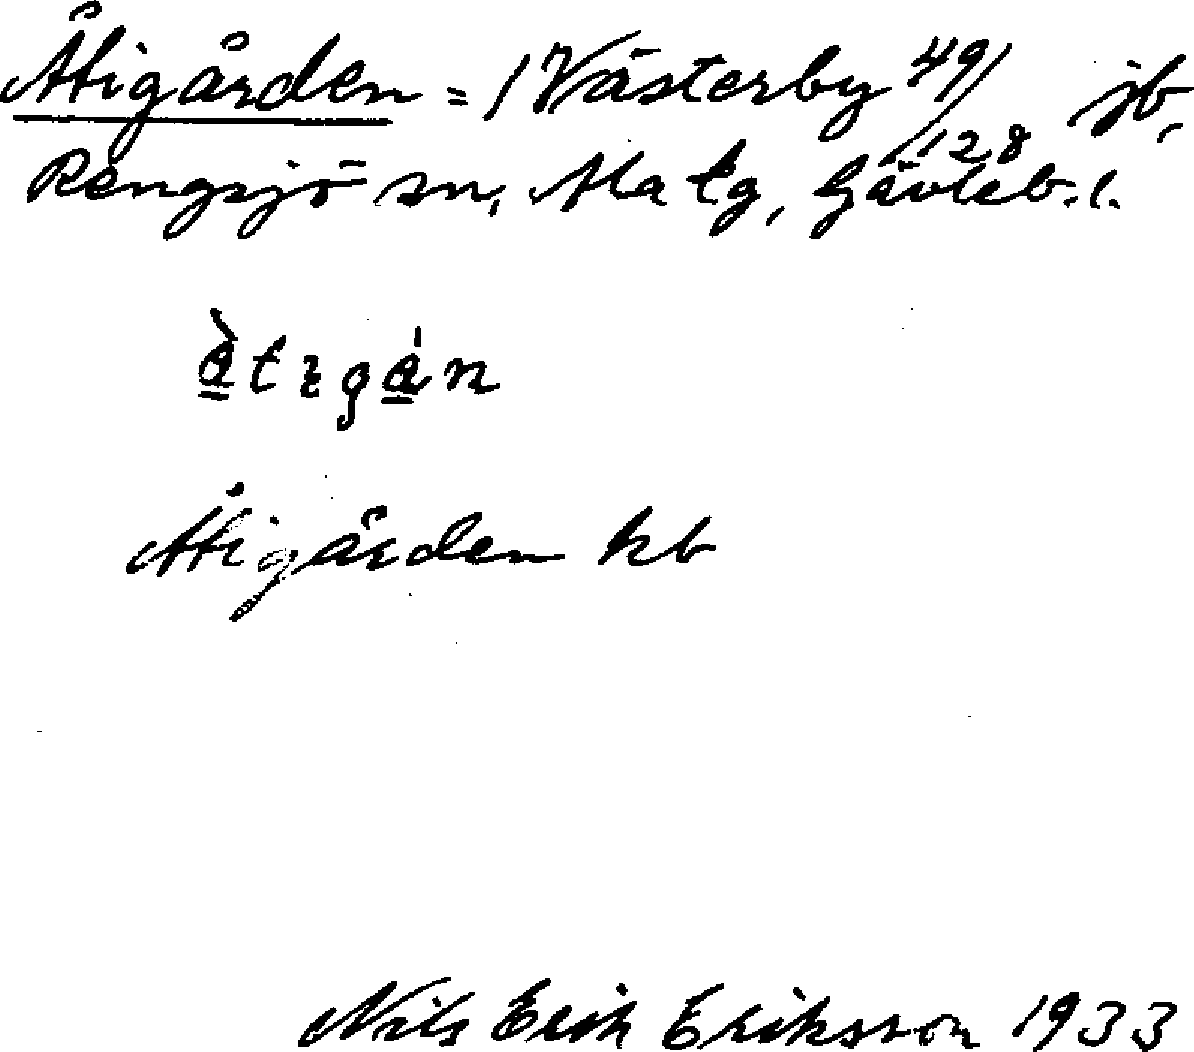 Åtigården = /Västerby 49/128 jb,
Rengsjö sn, Ala tg, Gävleb. l.
åtıgån
Åtigården kb
Nils Erik Eriksson 1933